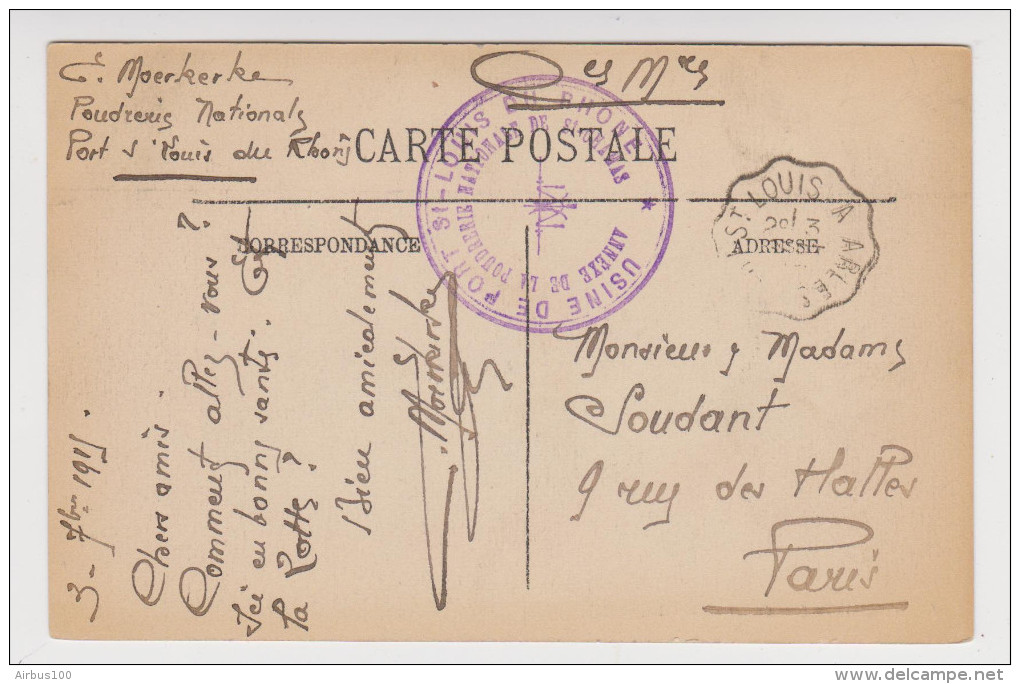 E. Moerkerke
Poudrerie Nationale
Port St Louis du Rhône
CARTE POSTALE
USINE DE PORT St-LOUIS DU RHONE
ANNEXE DE LA POUDRERIE NATIONALE DE St CHAMAS
St LOUIS A ARLES
CORRESPONDANCE
ADRESSE
3 - 7bre 1915.
Chers amis.
Comment allez-vous ?
Ici en bonne santé. Et
la
Bien amicalement
Moerkerke
Monsieur & Madame
Soudant
9 rue des Halles
Paris
Airbus100
delcampe.net